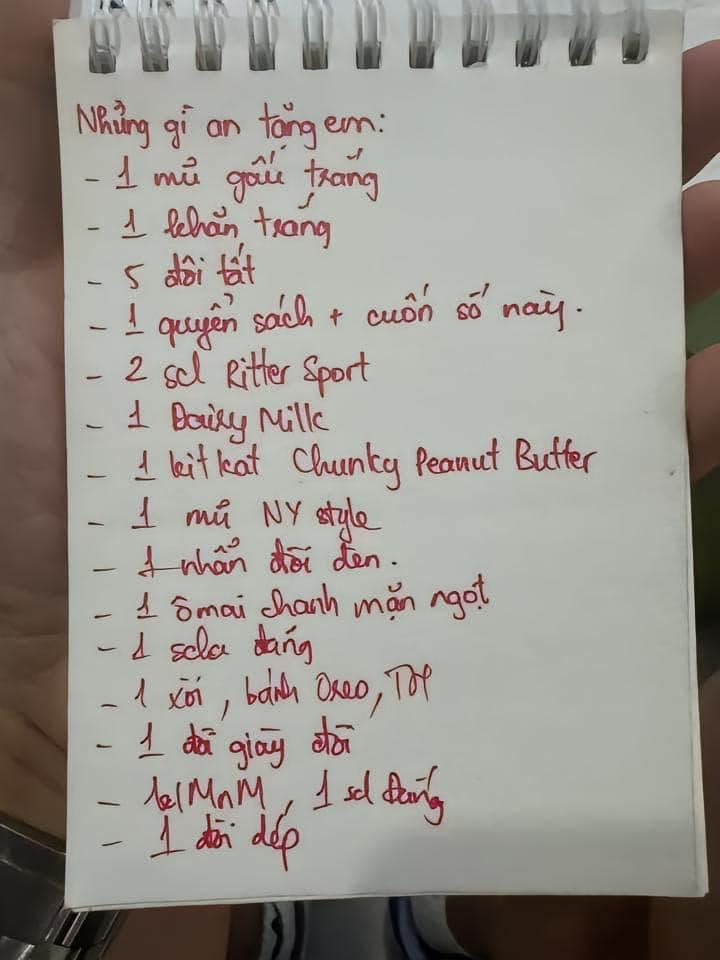 Những gì an tặng em:
- 1 mũ gấu trắng
- 1 khăn trắng
- 5 đôi tất
- 1 quyển sách + cuốn sổ này.
- 2 scl Ritter Sport
- 1 Dairy Milk
- 1 kit kat Chunky Peanut Butter
- 1 mũ NY style
- 1 nhẫn đôi đen.
- 1 ômai chanh mặn ngọt
- 1 scla đắng
- 1 xôi, bánh Oreo,
- 1 đôi giày đôi
- MnM, 1 scl Đắng
- 1 đôi dép